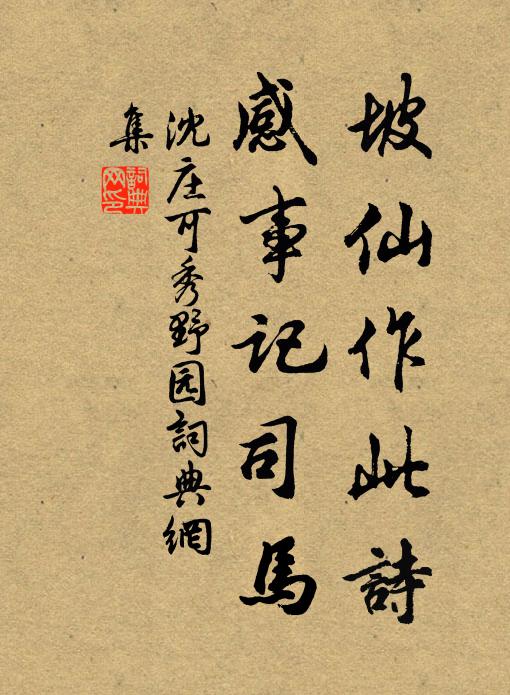 坡仙作此詩
感事記司馬
沈庄可秀野园詞典網
集
詞典网印